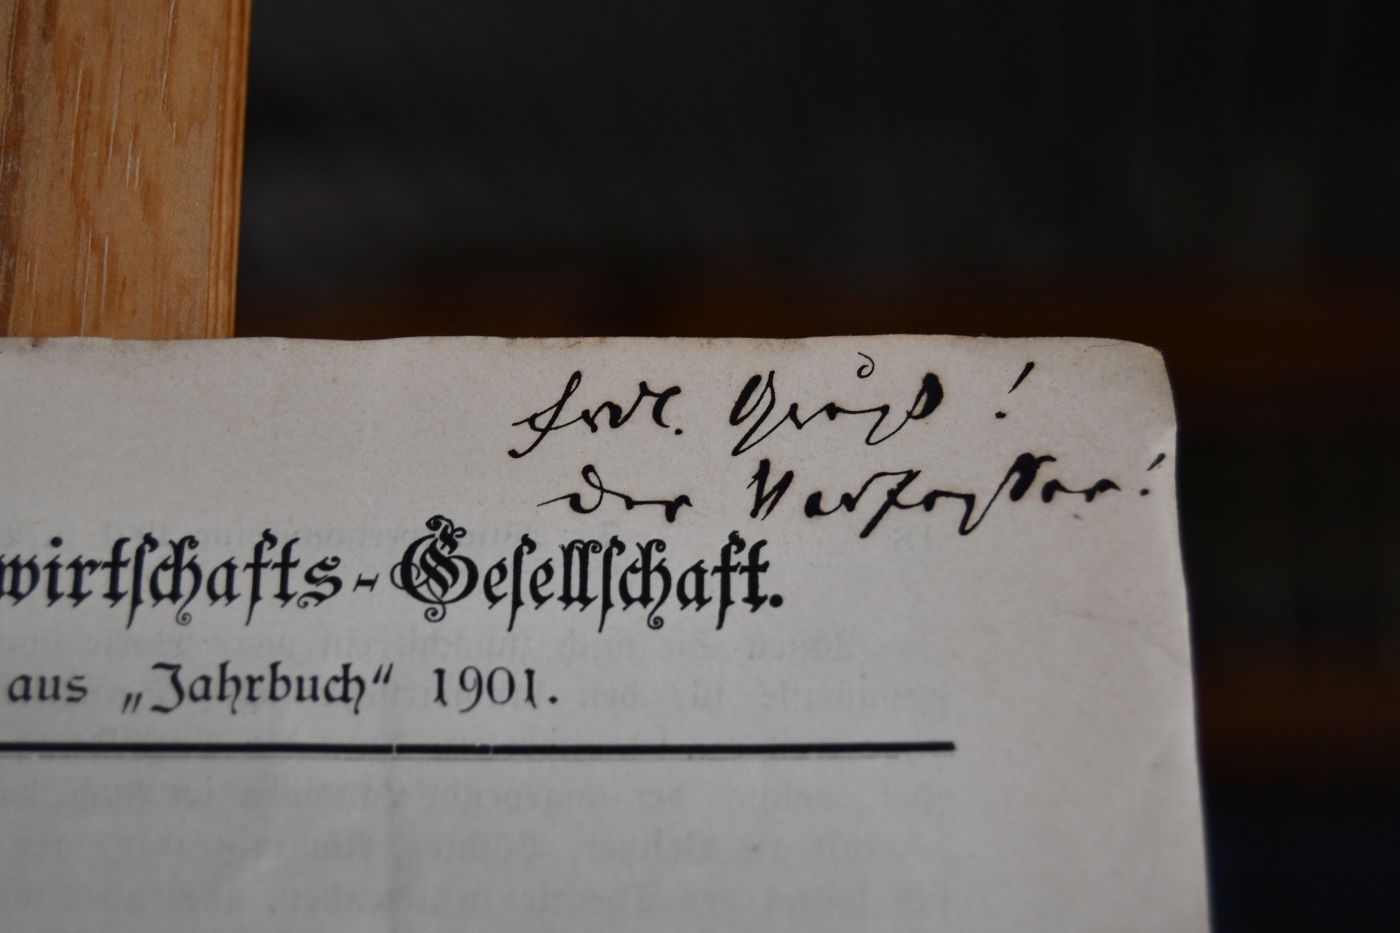 frdl. Gruß!
der Verfasser!
wirtschafts-Gesellschaft.
aus „Jahrbuch“ 1901.